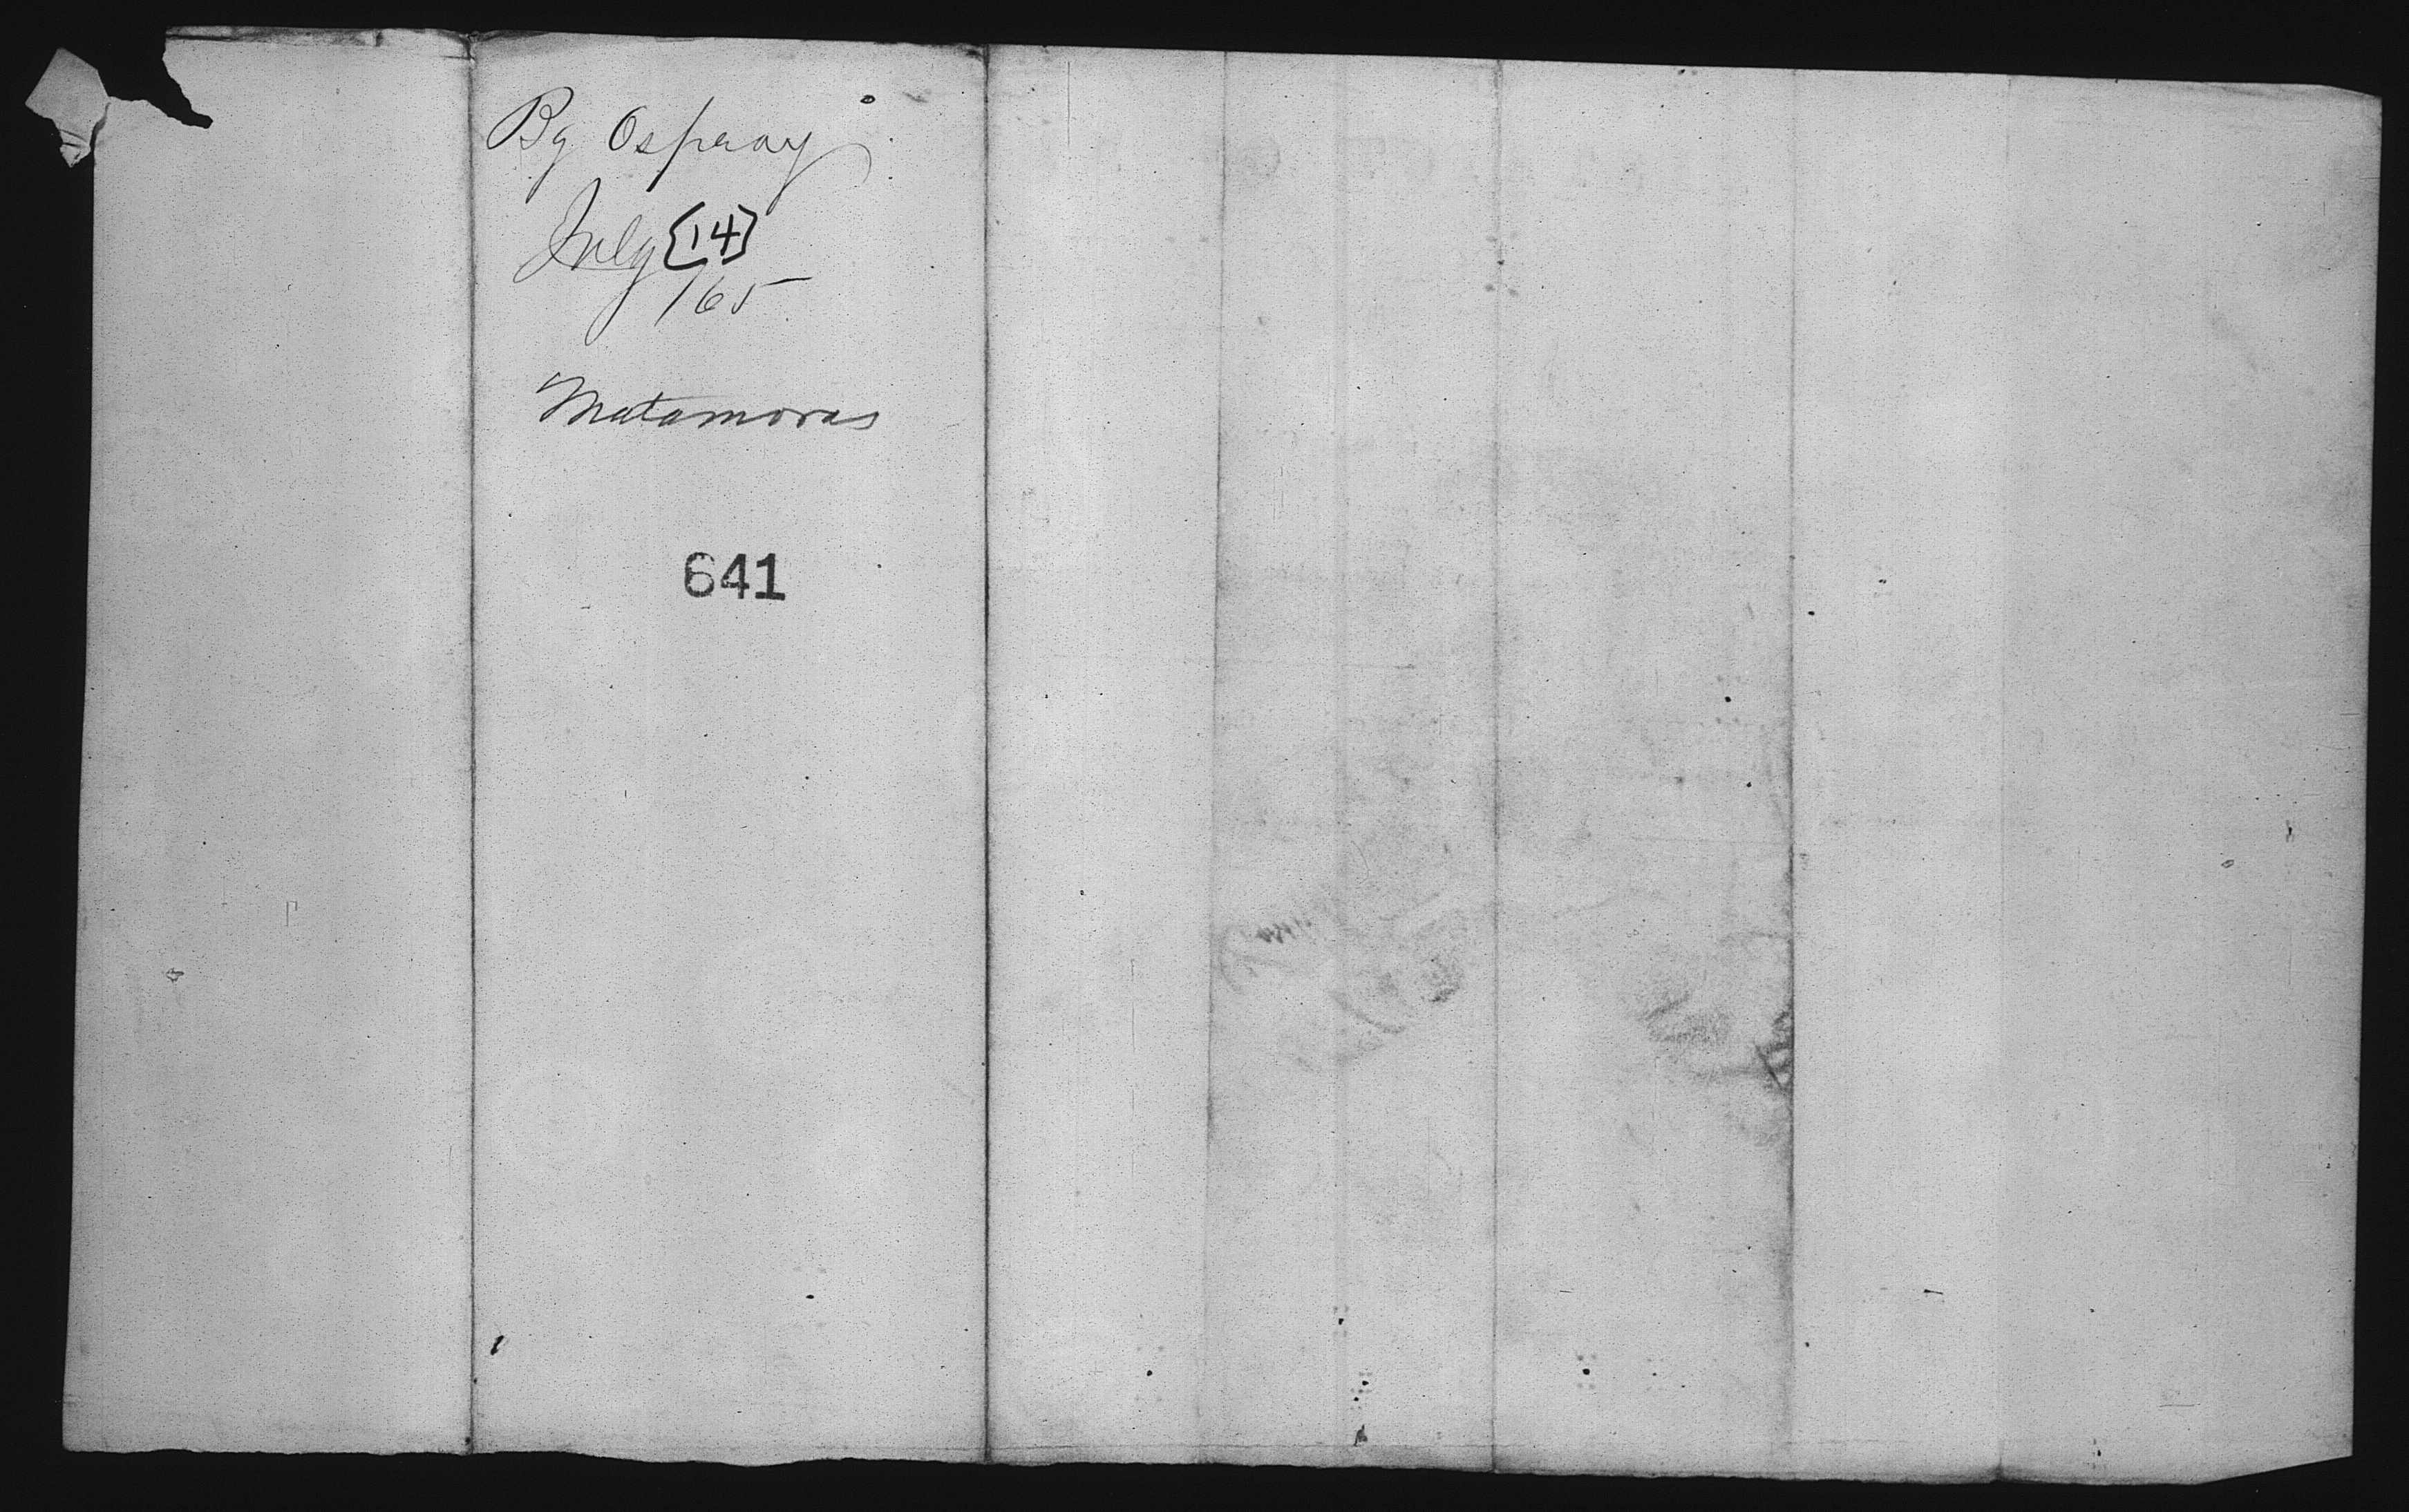 Bg Ospray
July [14]
/65
Matamoras
641